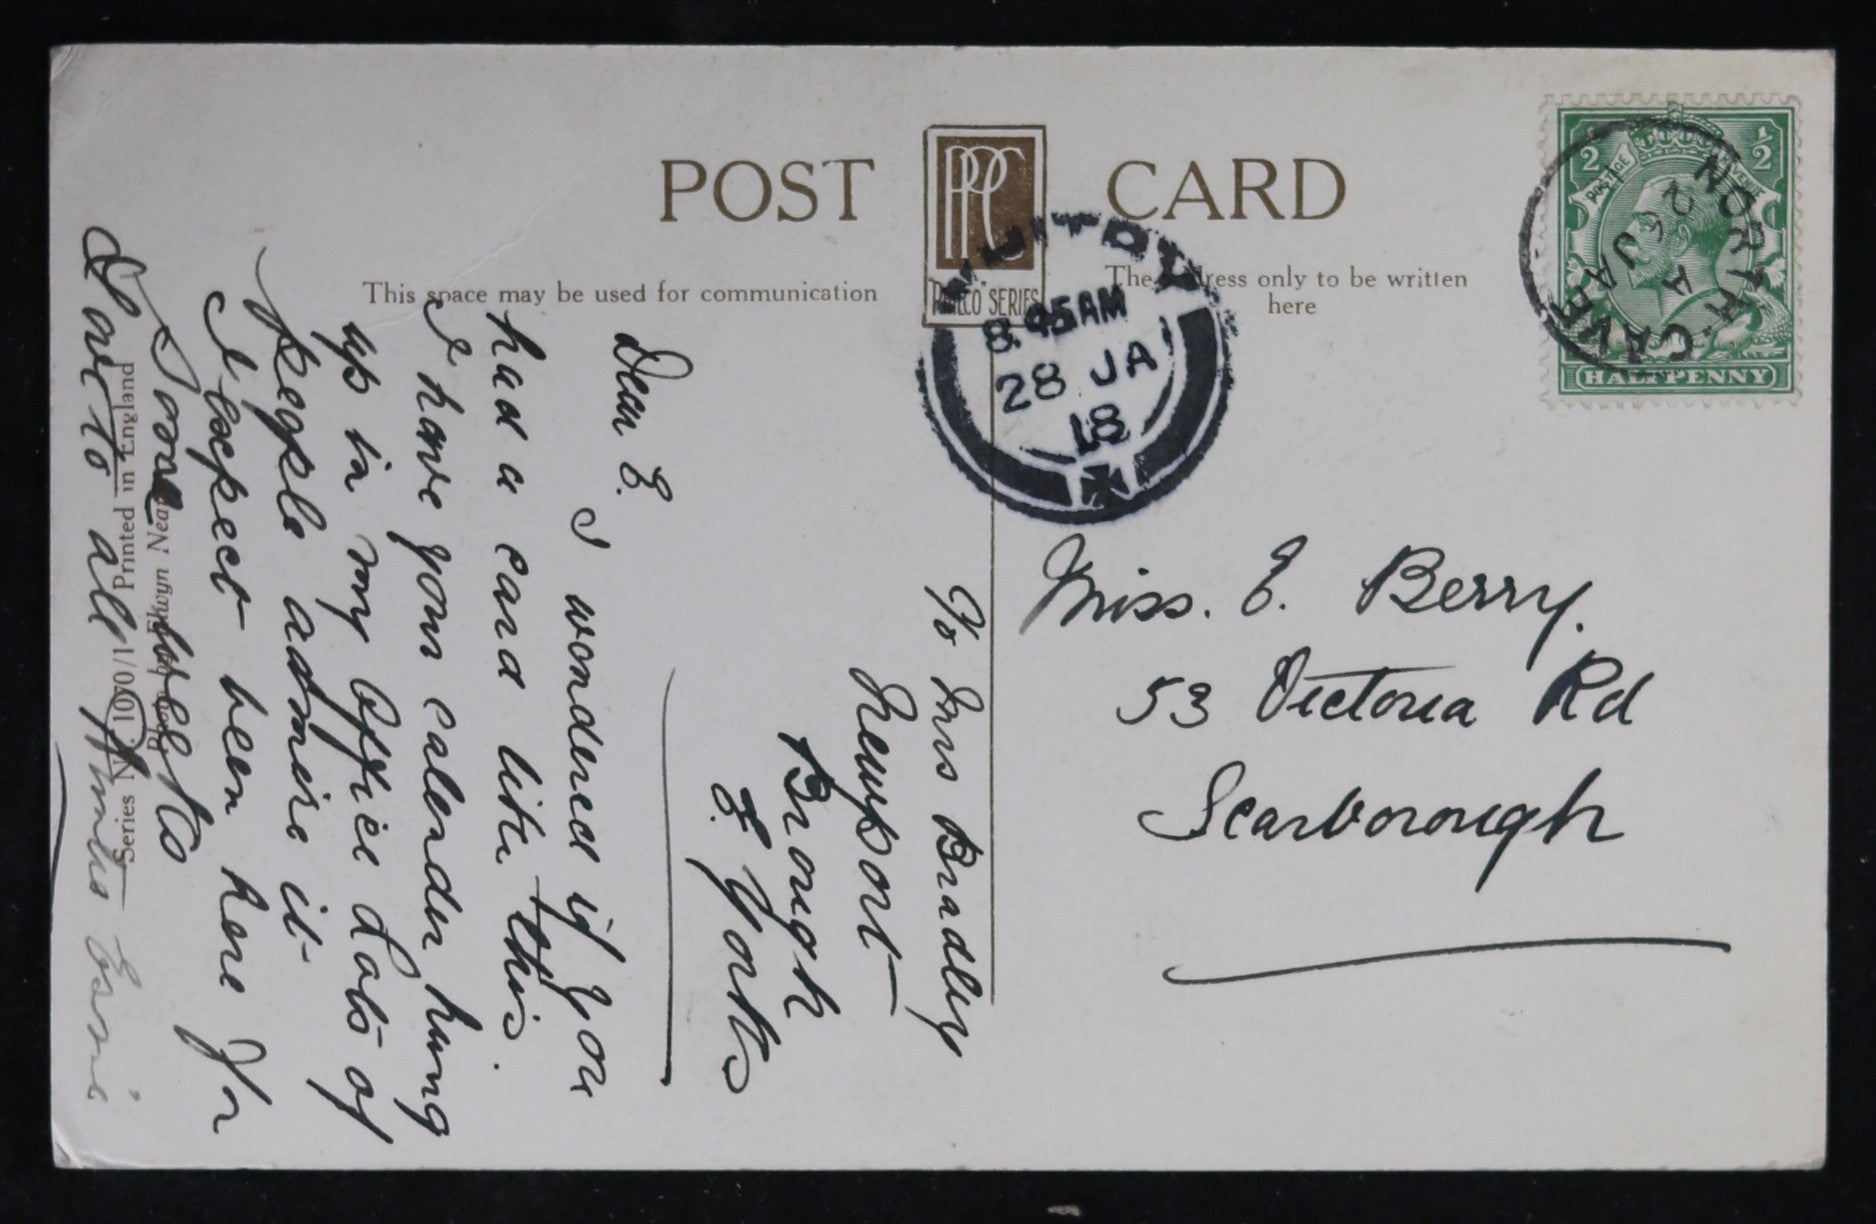 POST CARD
PPC
"PHILCO" SERIES
This space may be used for communication
The address only to be written
here
½ ½
POSTAGE REVENUE
HALFPENNY
NORTH CAVE
A
26 JA
WHITBY
8.45AM
28 JA
18
Miss. E. Berry.
53 Victoria Rd
Scarborough
c/o Mrs Bradley
Newport
Brough
E. Yorks
Dear E.
I wondered if you
had a card like this.
I have your calender hung
up in my office Lots of
people admire it
I expect been here for
some weeks
Love to all
Series No 1070/1 Printed in England
Photo by Elwyn Neame